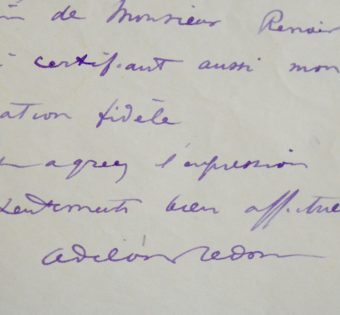 de Monsieur Renoir
certifiant aussi mon
ation fidèle
agréez l'expression
sentiments bien affectue
Odilon Redon